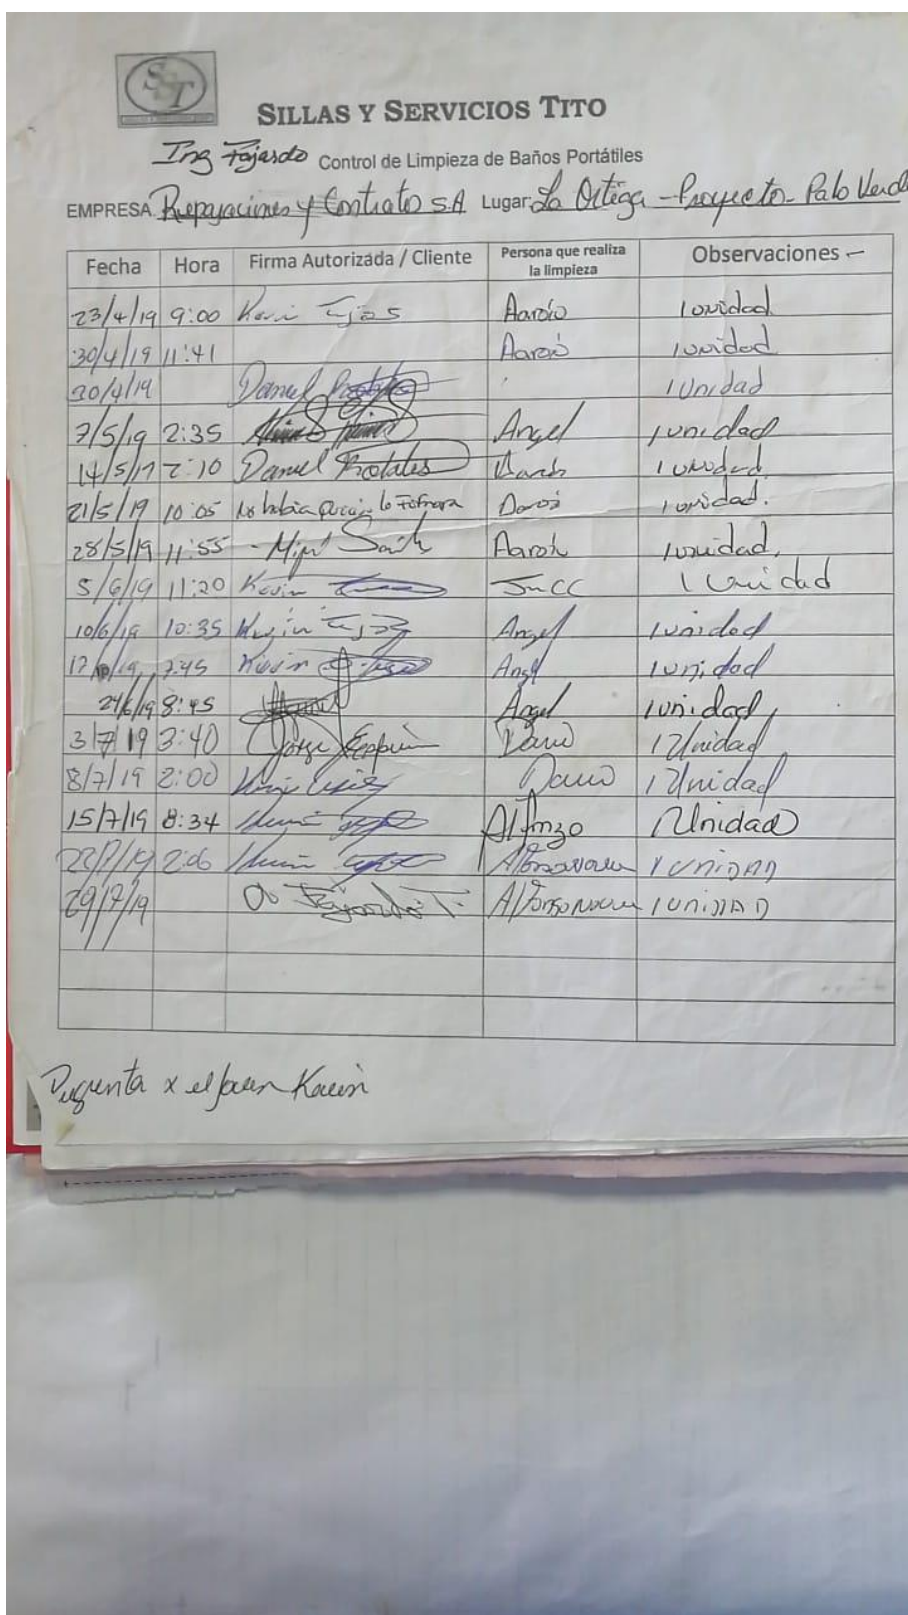 SST
SILLAS Y SERVICIOS TITO
Ing Fajardo Control de Limpieza de Baños Portátiles
EMPRESA: Repajaciones y Contratos S.A Lugar: La Ortega - Proyecto - Palo Verde
Fecha Hora Firma Autorizada / Cliente Persona que realiza la limpieza Observaciones -
23/4/19 9:00 Aarón 1 unidad
30/4/19 11:41 Aarón 1 unidad
30/4/19 Daniel 1 Unidad
7/5/19 2:35 Angel 1 unidad
14/5/19 2:10 Daniel 1 unidad
21/5/19 10:05 No había quien lo firmara 1 unidad.
28/5/19 11:55 Aarón 1 unidad.
5/6/19 11:20 Kevin 1 Unidad
10/6/19 10:35 Angel 1 unidad
17/6/19 7:45 Kevin Angel 1 unidad
24/6/19 8:45 Angel 1 unidad
3/7/19 3:40 Jorge 1 Unidad
8/7/19 2:00 1 Unidad
15/7/19 8:34 Alfonzo 1 Unidad
2:06 1 UNIDAD
29/7/19 Fajardo T. 1 UNIDAD
Pregunta x el Kevin